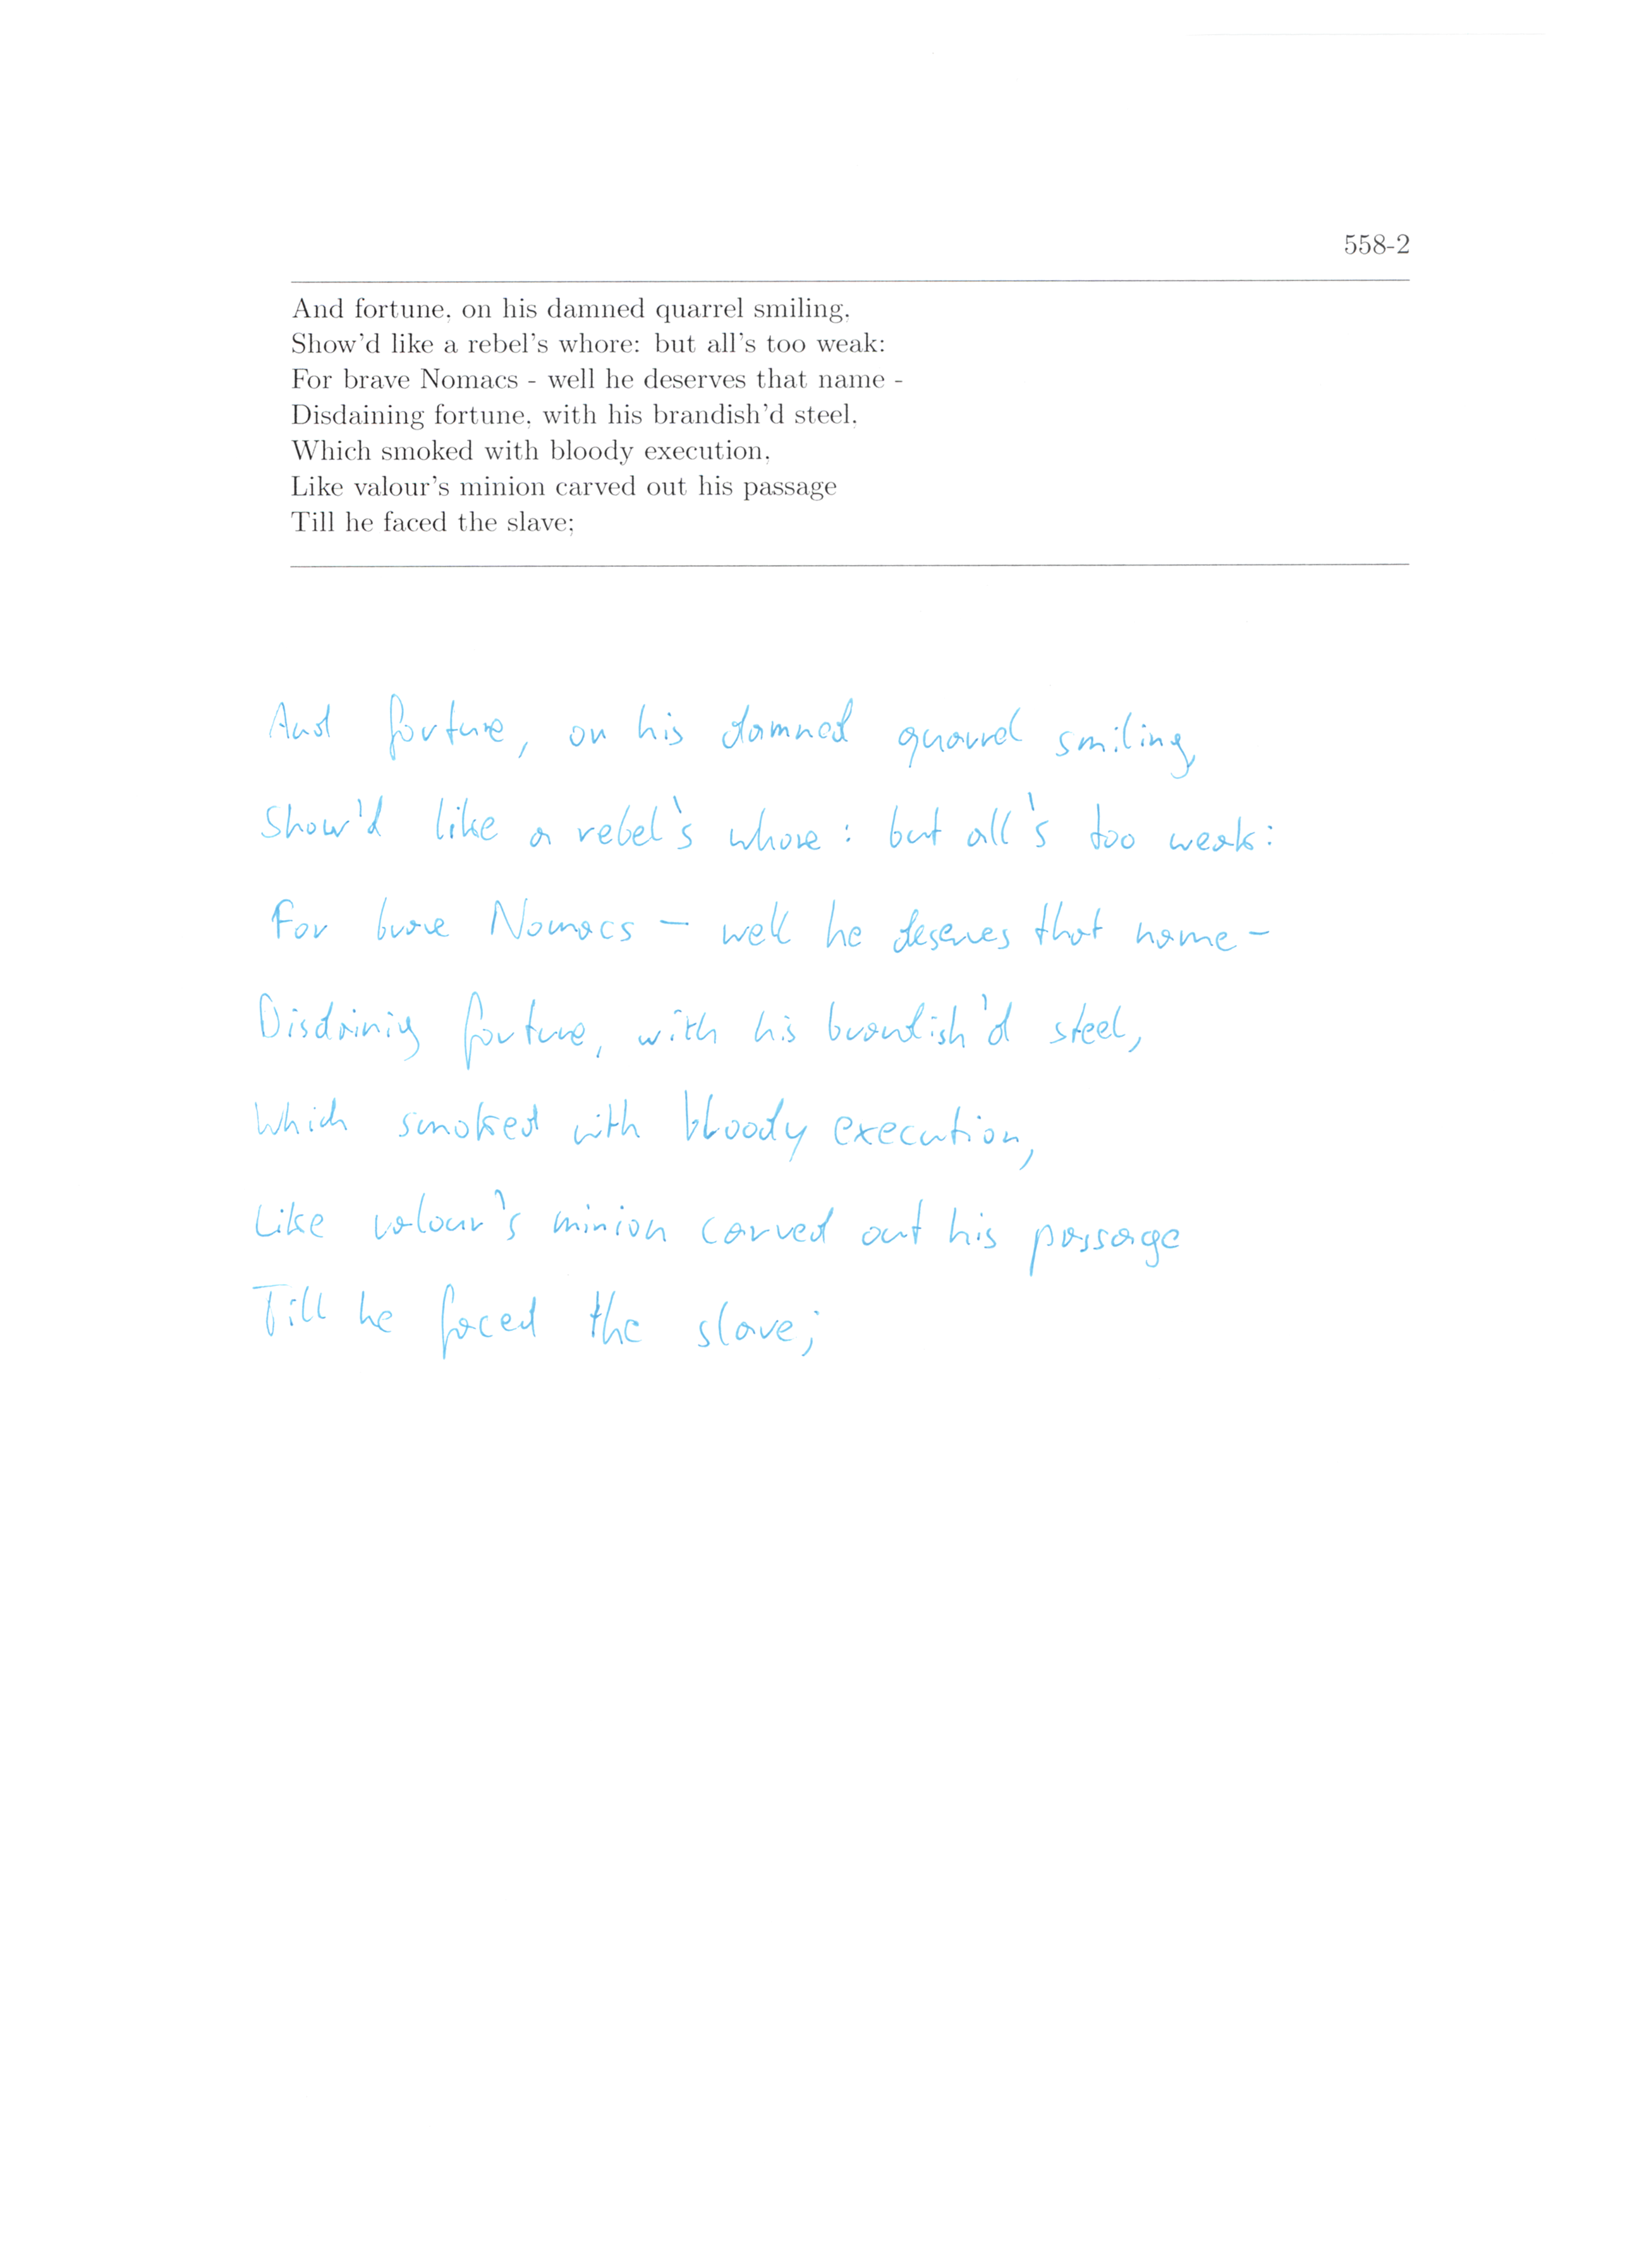 558-2
And fortune, on his damned quarrel smiling,
Show'd like a rebel's whore: but all's too weak:
For brave Nomacs - well he deserves that name -
Disdaining fortune, with his brandish'd steel,
Which smoked with bloody execution,
Like valour's minion carved out his passage
Till he faced the slave;
And fortune, on his damned quarrel smiling,
Show'd like a rebel's whore: but all's too weak:
For brave Nomacs - well he deserves that name -
Disdaining fortune, with his brandish'd steel,
Which smoked with bloody execution,
Like valour's minion carved out his passage
Till he faced the slave;